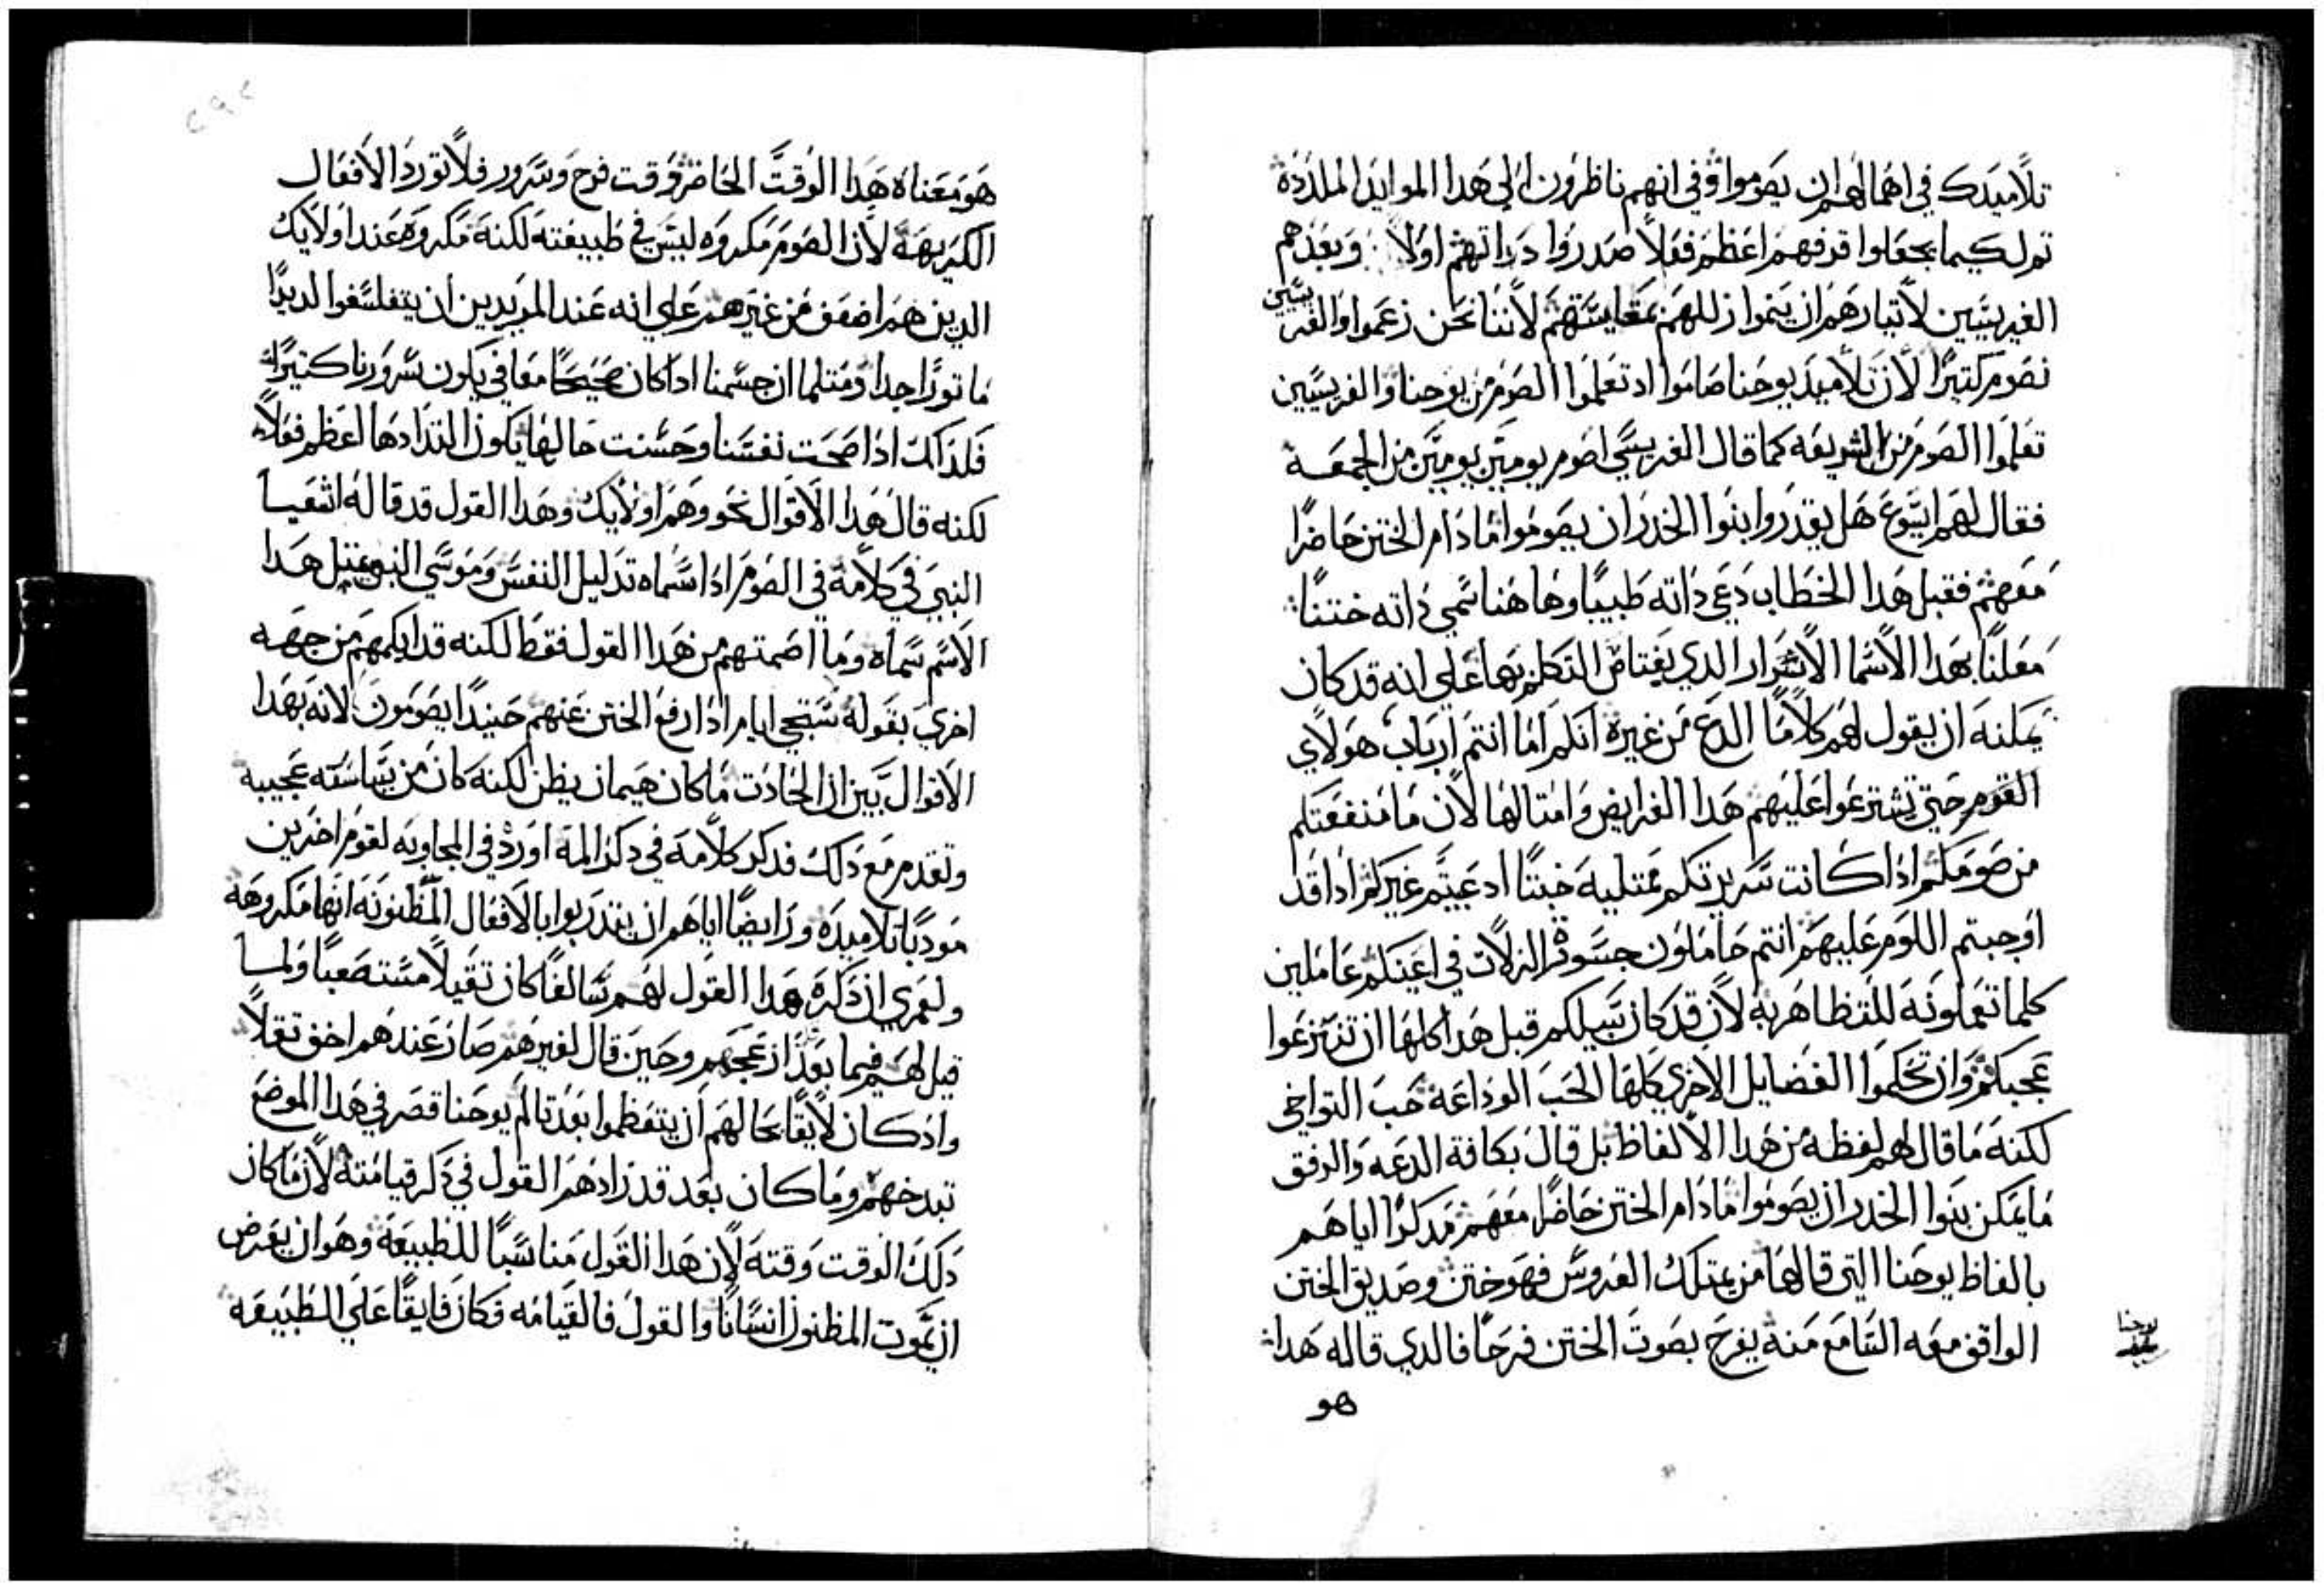 تلاميدك في اهمالهم ان يصوموا وفي انهم ناظرون الي هدا الموايد الملددة
تم لكيما يجعلوا قرفهم اعظم فعلا صدروا دواتهم اولا وبعدهم
الفريسيين لاتبارهم ان يتموا زللهم بمقايستهم لاننا نحن زعموا والفريسيين
نصوم كتيرا لان تلاميد يوحنا صاموا اد تعلموا الصوم من يوحنا والفريسيين
تعلموا الصوم من الشريعه كما قال الفريسي اصوم يومين يومين من الجمعه
فقال لهم ايسوع هل يقدروا بنوا الخدر ان يصوموا ما دام الختن حاضرا
معهم فقبل هدا الخطاب دعي داته طبيبا وها هنا سمي داته ختنا
معلنا بهدا الاسما الاسرار الدي يعتاص التكلم بها علي انه قد كان
يمكنه ان يقول لهم كلاما الدع من غيره انكم اما انتم ارباب هولاي
القوم حتي تشترعوا عليهم هدا الفرايض وامتالها لان ما منفعتكم
من صومكم ادا كانت سريرتكم ممتليه خبتا اد عبتم غيركم ادا قد
اوجبتم اللوم عليهم انتم حاملون جسوقة الزلات في اعينكم عاملين
كلما تعملونه للتظاهر به لان قد كان سبيلكم قبل هدا كلها ان تنتزعوا
عجبكم وان تحكموا الفضايل الاخري كلها الحب الوداعة حب التواخي
لكنه ما قال لهم لفظه من هدا الالفاظ بل قال بكافة الدعه والرفق
ما يمكن بنوا الخدر ان يصوموا ما دام الختن حاضرا معهم مدكرا اياهم
بالفاظ يوحنا التي قالها من يمتلك العروس فهو ختن وصديق الختن
الواقف معه السامع منه يفرح بصوت الختن فرحا فالدي قاله هدا
يوحنا
هو
هو معناه هدا الوقت الحاضر وقت فرح وسرور فلا تورد الافعال
الكريهة لان الصوم مكروه ليس في طبيعته لكنه مكروه عند اولايك
الدين هم اضعف من غيرهم علي انه عند المريدين ان يتفلسفوا لديدا
ماتورا جدا ومتلما ان جسمنا ادا كان صحيحا معافي يكون سرورنا كتيرا
فلداك ادا صحت نفسنا وحسنت حالها يكون التدادها اعظم فعلا
لكنه قال هدا الاقوال نحو وهم اولايك وهدا القول قد قاله اشعيا
النبي في كلامة في الصوم ادا سماه تدليل النفس وموسي النبي بمتل هدا
الاسم سماه وما اصمتهم من هدا القول فقط لكنه قد ابكمهم من جهه
اخري بقوله ستجي ايام ادا رفع الختن عنهم حينيدا يصومون لانه بهدا
الاقوال بين ان الحادت ما كان هيمان بطن لكنه كان من سياسته عجيبه
وتقدم مع دلك فدكر كلامه في دكر المه اورد في المجاوبه لقوم اخرين
مودبا تلاميده ورايضا اياهم ان يتدربوا بالافعال المظنونه انها مكروهه
ولعمري ان دكره هدا القول لهم سالفا كان تقيلا مستصعبا ولما
قيل لهم فيما بعد ازعجهم وحين قال لغيرهم صار عندهم اخف تقلا
واد كان لايقا بحالهم ان يتعظموا بعد تالم يوحنا قصر في هدا الموضع
تبدخهم وما كان بعد قد زادهم القول في دكر قيامته لان ما كان
دلك الوقت وقته لان هدا القول مناسبا للطبيعة وهو ان يعرض
ان يموت المظنون انسانا والقول فالقيامه فكان فايقا علي الطبيعه